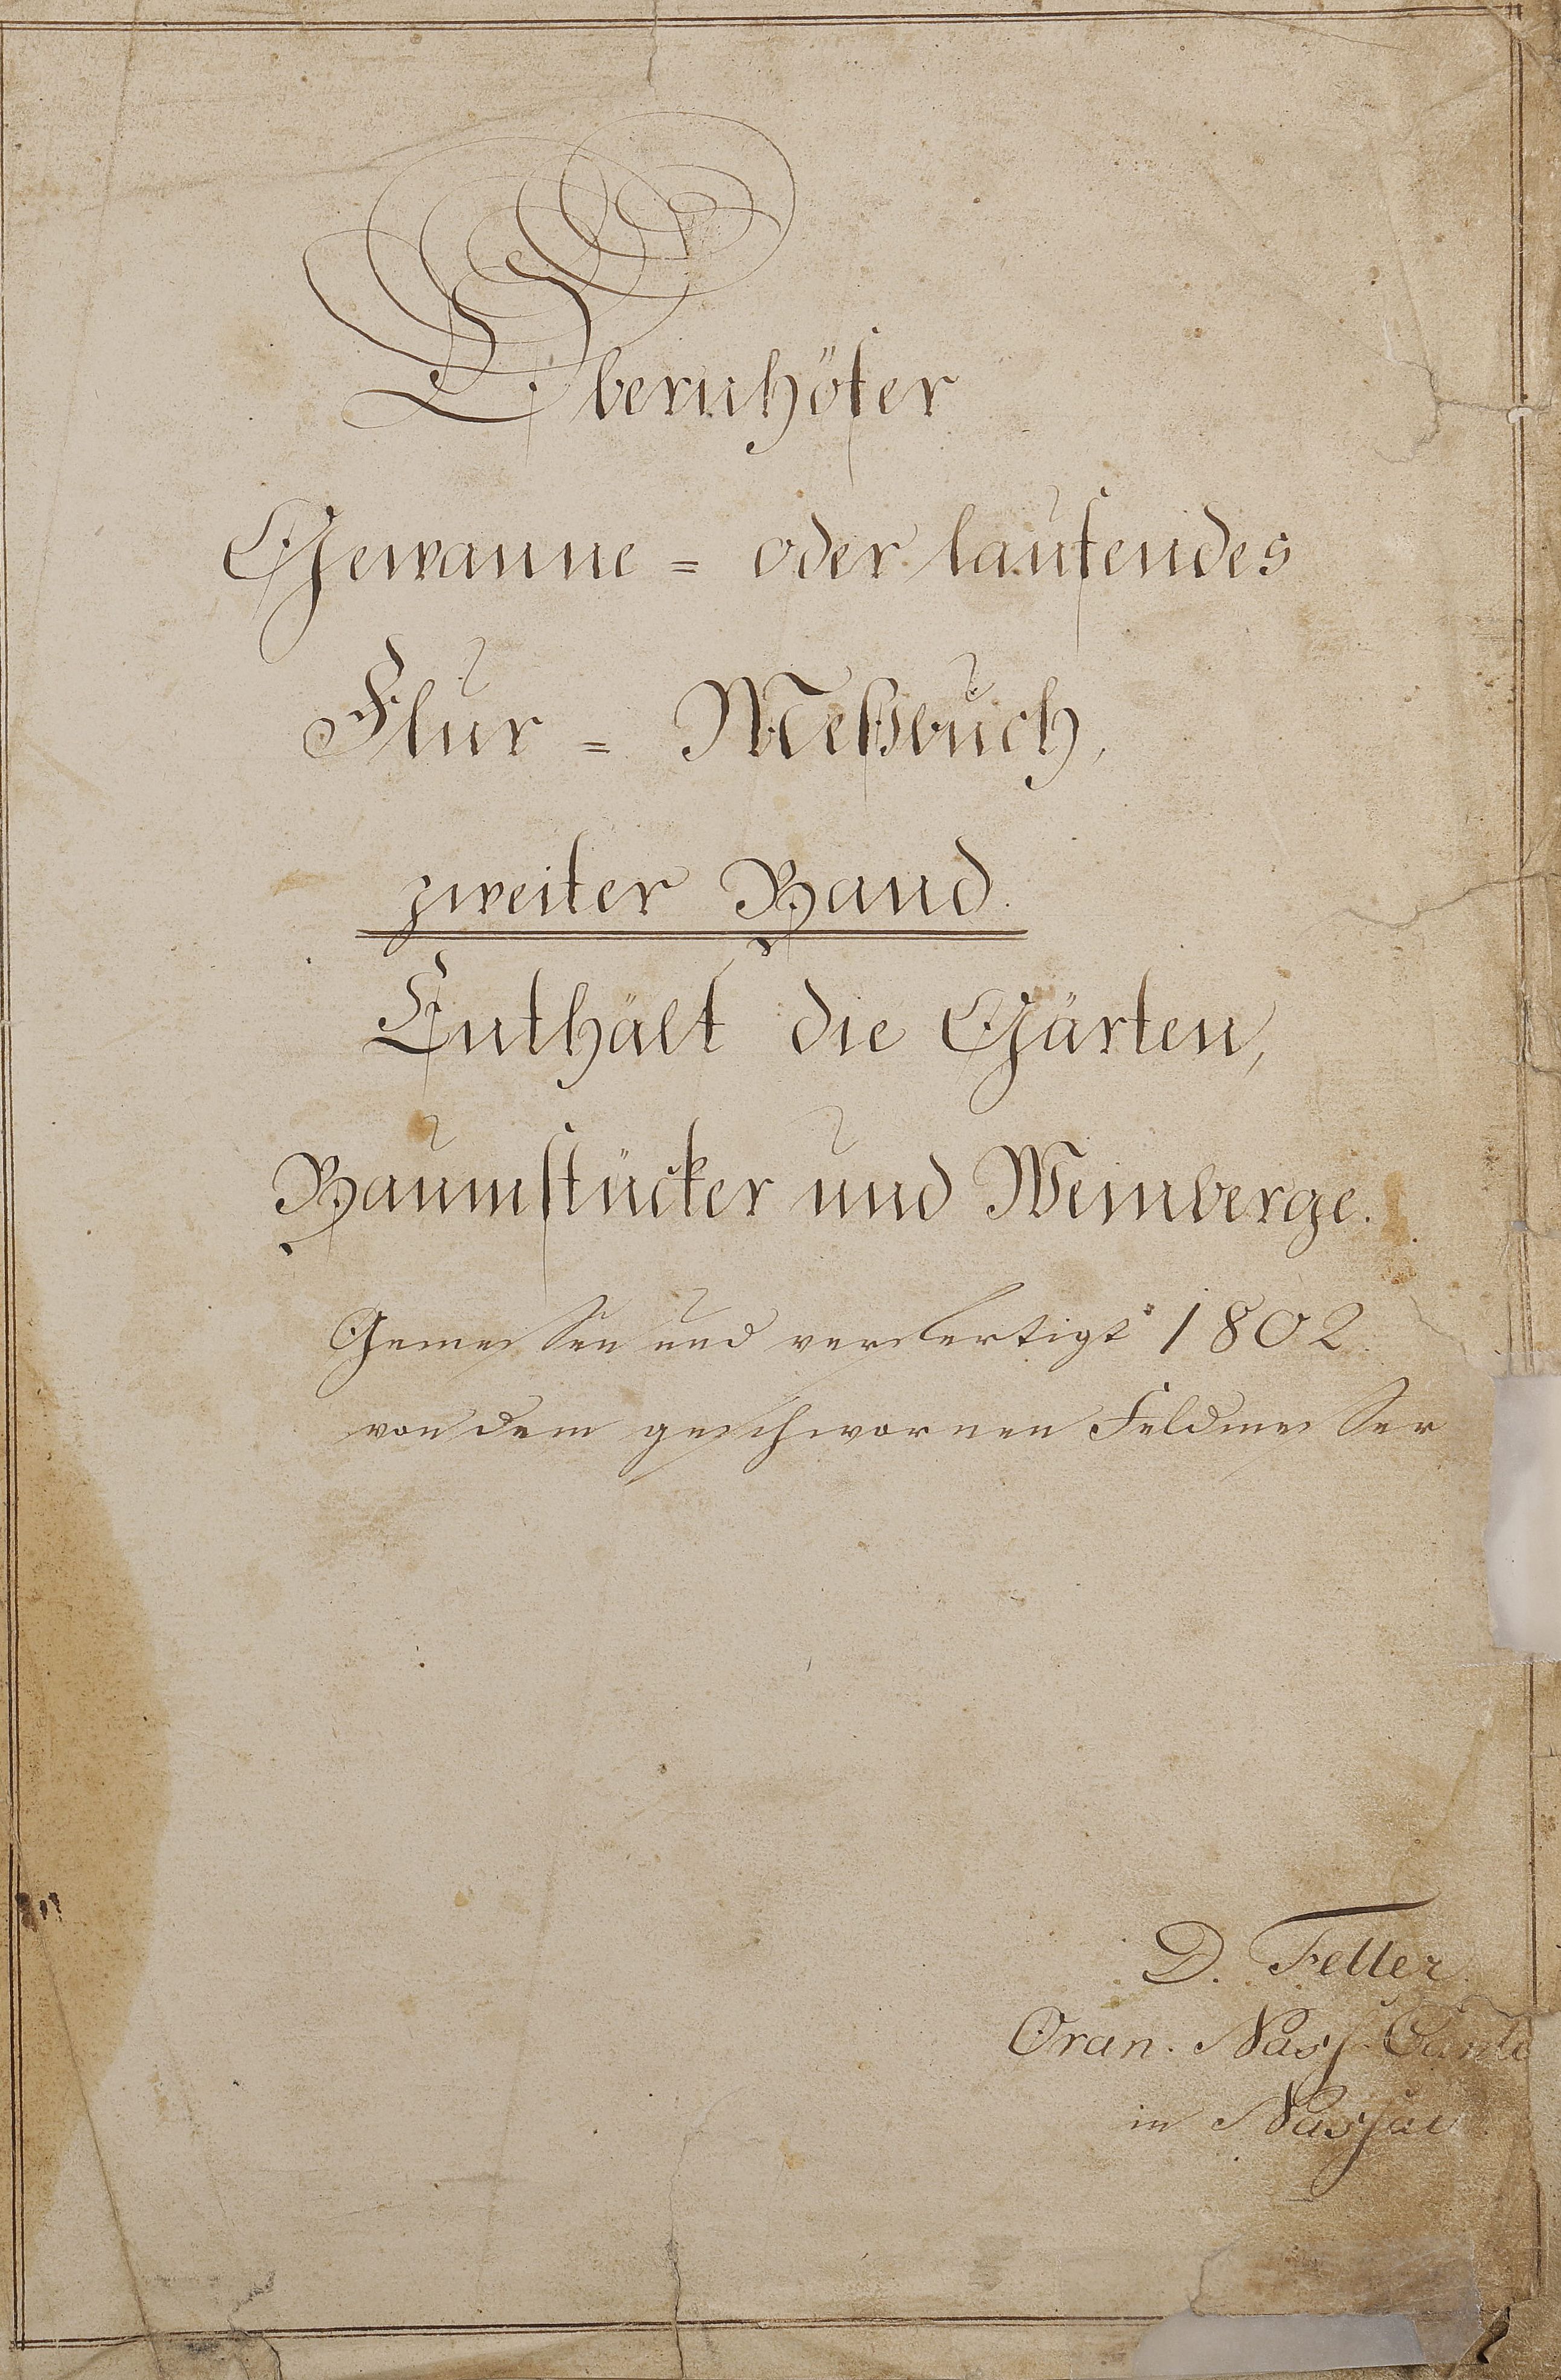 Obernhöfer
Gewanne = oder laufendes
Flur = Meßbuch,
zweiter Band.
Enthält die Gärten,
Baumstücker und Weinberge.
Gemessen und verfertigt 1802
von dem geschwornen Feldmesser
D. Feller
Oran. Nass.
in Nassau